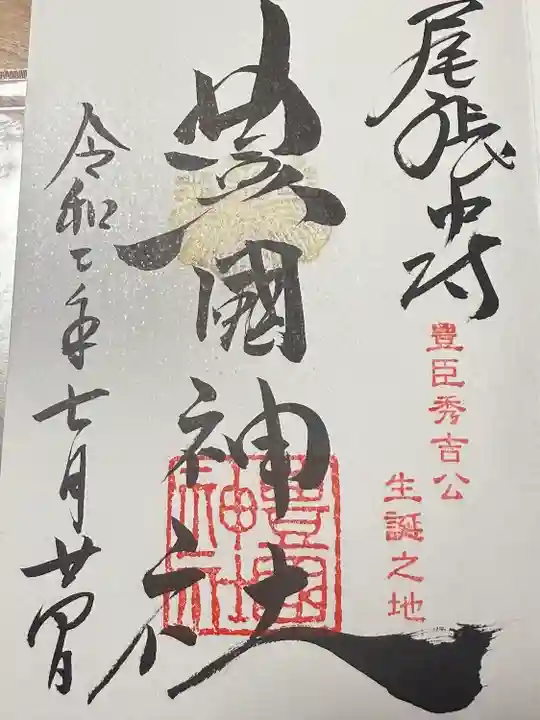 尾張中村
豊臣秀吉公
生誕之地
豊國神社
豊國神社
令和二年七月廿四日